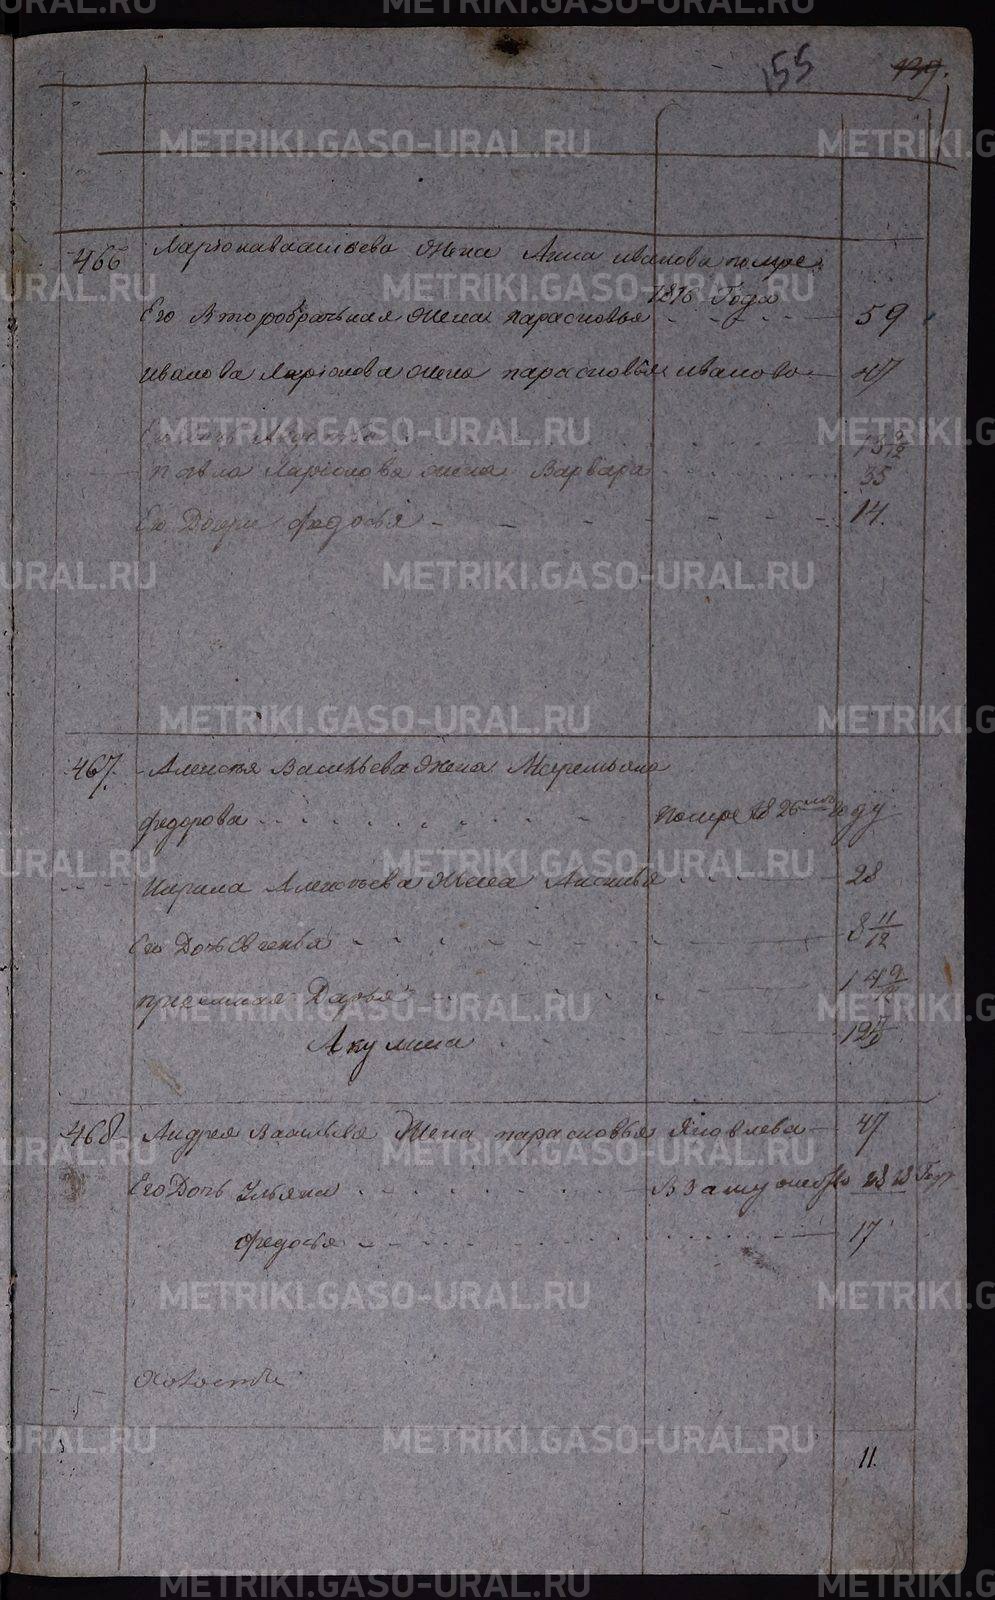 155
139.
466 Лариона васильева Жена Анна иванова помре
1816 Года
Его Второбрачьная жена парасковья - - - 59
иванова Лариолова жена парасковья иванова - 47
Его дочь Авдотья 13 9/12
павла Лариолова жена Варвара 35
Ею Дочри федосья - - - - - - 14.
467. Алексея Васильева жена
федорова . . . . . . помре 1826 году
Кирила Алексеева Жена 28
Его Дочь Евгенья - - - 8 11/12
приемная Дарья 14 9/12
Акулина 12
468 Андрея Васильева Жена парасковья Яковлева - 47
Его Дочь Ульяна . . . . . В Замужество Году
федосья - - - - 17
11.
METRIKI.GASO-URAL.RU